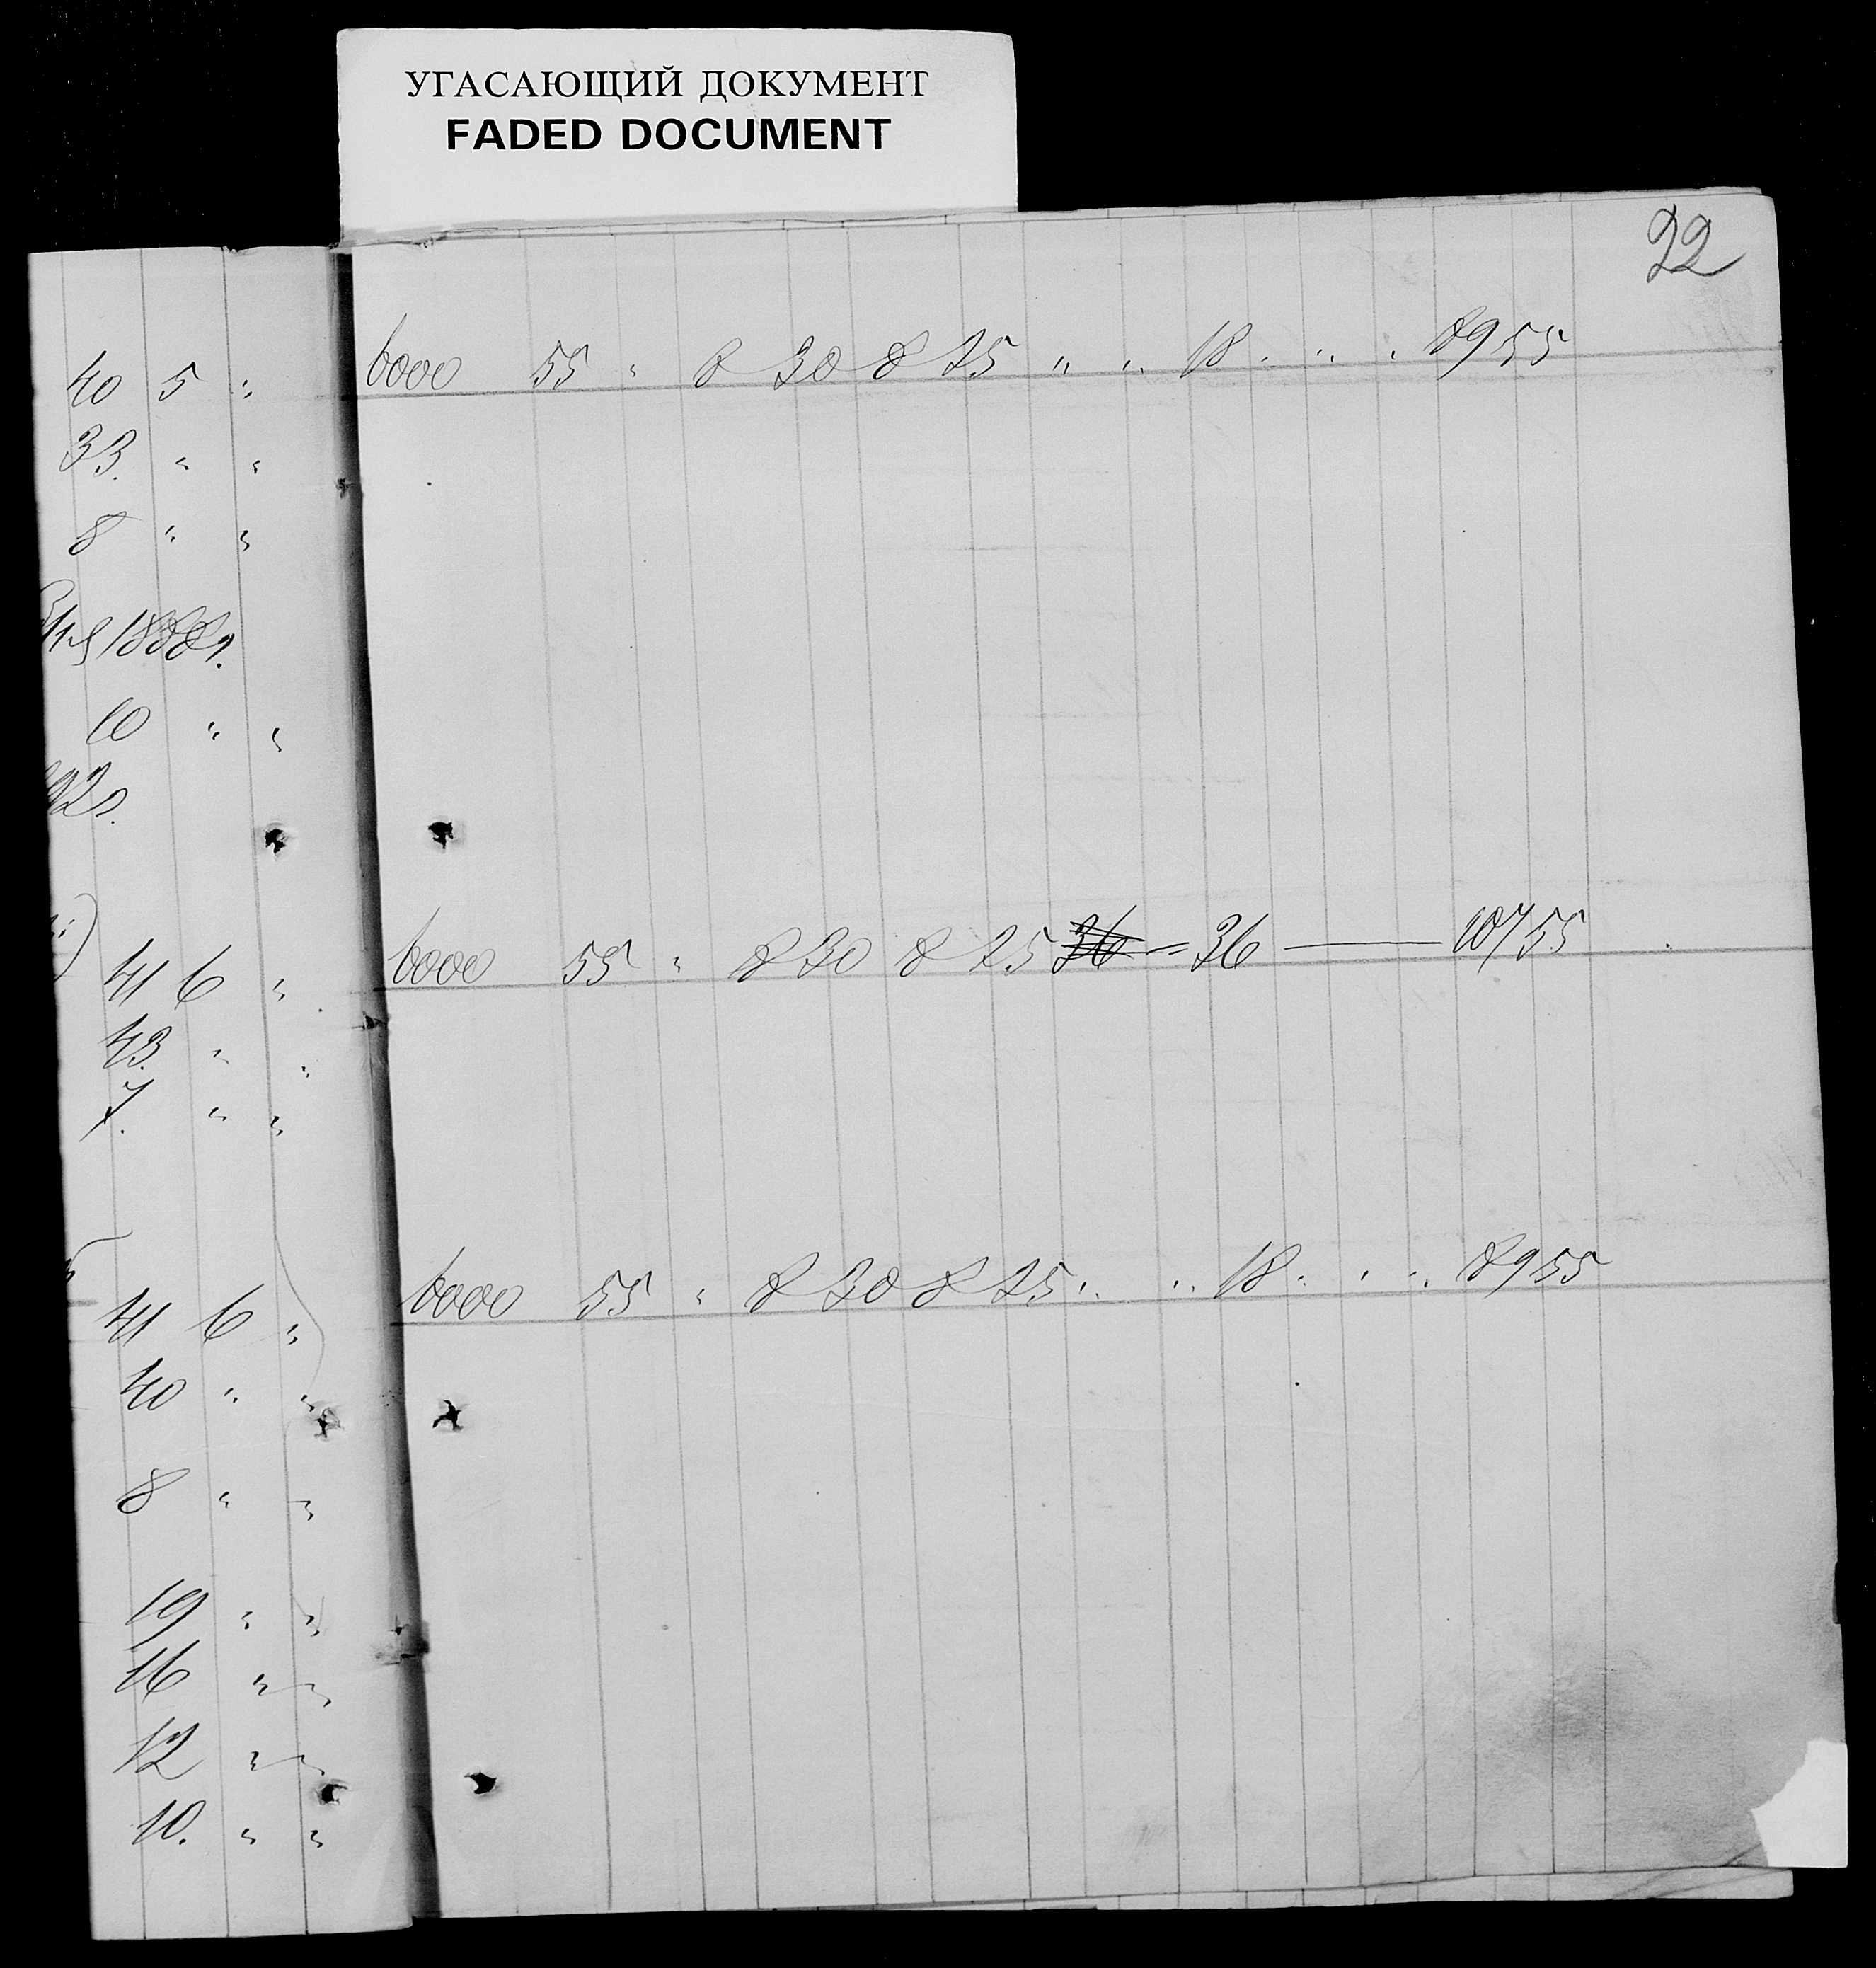 УГАСАЮЩИЙ ДОКУМЕНТ
FADED DOCUMENT
22
40 5 "
33. " "
8 " "
1888 г.
10 " "
92 г.
41 6 "
43. " "
7. " "
41 6 "
40 " "
8 " "
19 " "
16 " "
12 " "
10. " "
6000 55 " 8 30 8 25 " " 18 " " " 8955
6000 55 " 8 30 8 25 36 = 36 — 10755
6000 55 " 8 30 8 25 " " 18 " " " 8955